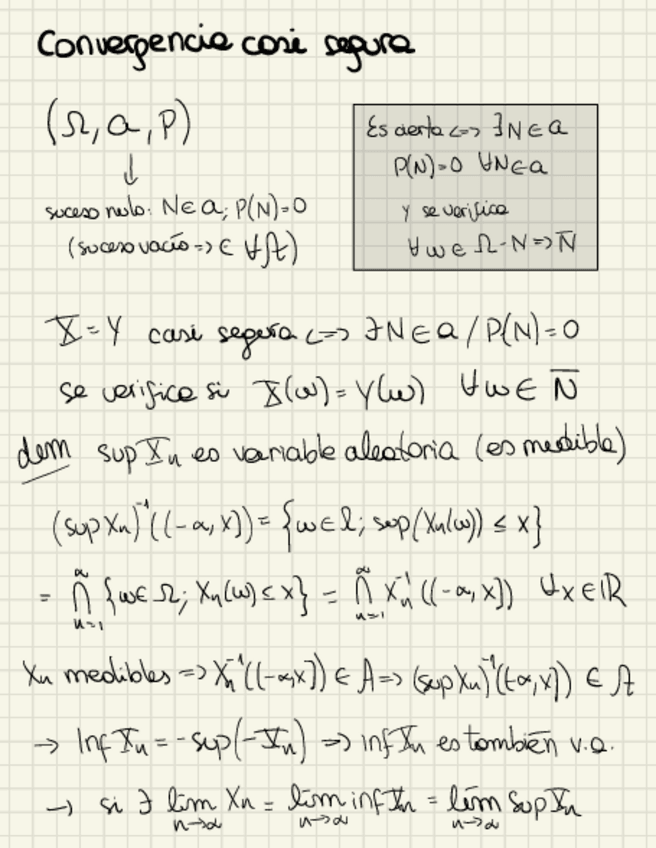 Convergencia casi segura
(Ω, a, P)
↓
suceso nulo: N ∈ a; P(N)=0
(suceso vacío => ∈ ∀A)
Es cierta <=> ∃N ∈ a
P(N)=0 ∀N ∈ a
y se verifica
∀ω ∈ Ω-N => N̅
X = Y casi segura <=> ∃N ∈ a / P(N)=0
se verifica si X(ω) = Y(ω) ∀ω ∈ N̅
dem sup Xₙ es variable aleatoria (es medible)
(sup Xₙ)⁻¹((-∞, x]) = {ω ∈ Ω; sup(Xₙ(ω)) ≤ x}
= ⋂ₙ₌₁^∞ {ω ∈ Ω; Xₙ(ω) ≤ x} = ⋂ₙ₌₁^∞ Xₙ⁻¹((-∞, x]) ∀x ∈ ℝ
Xₙ medibles => Xₙ⁻¹((-∞,x]) ∈ A => (sup Xₙ)⁻¹((-∞,x]) ∈ A
→ Inf Xₙ = -sup(-Xₙ) => inf Xₙ es también v.a.
→ si ∃ lim_{n→∞} Xₙ = lím_{n→∞} inf Xₙ = lím_{n→∞} sup Xₙ